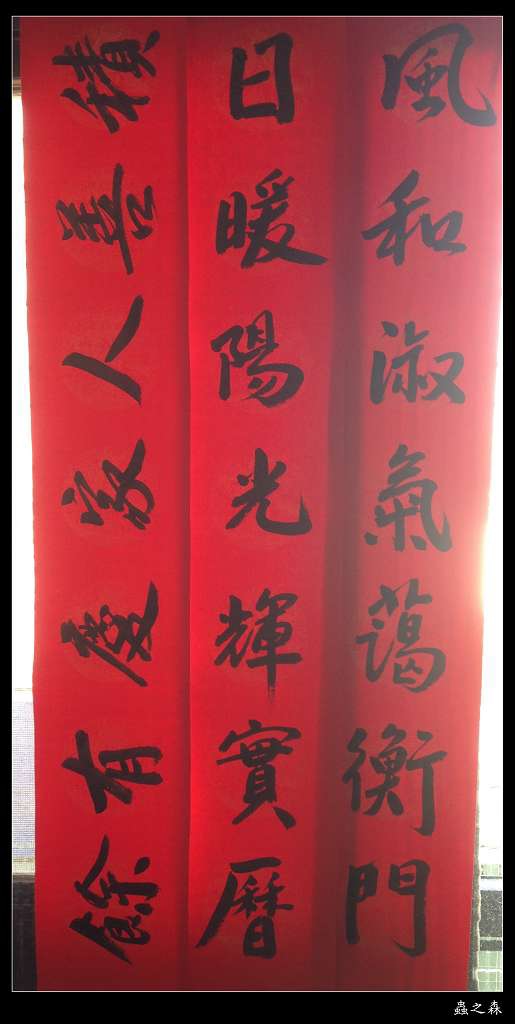 風和淑氣藹衡門
日暖陽光輝實曆
積善人家慶有餘
蟲之森